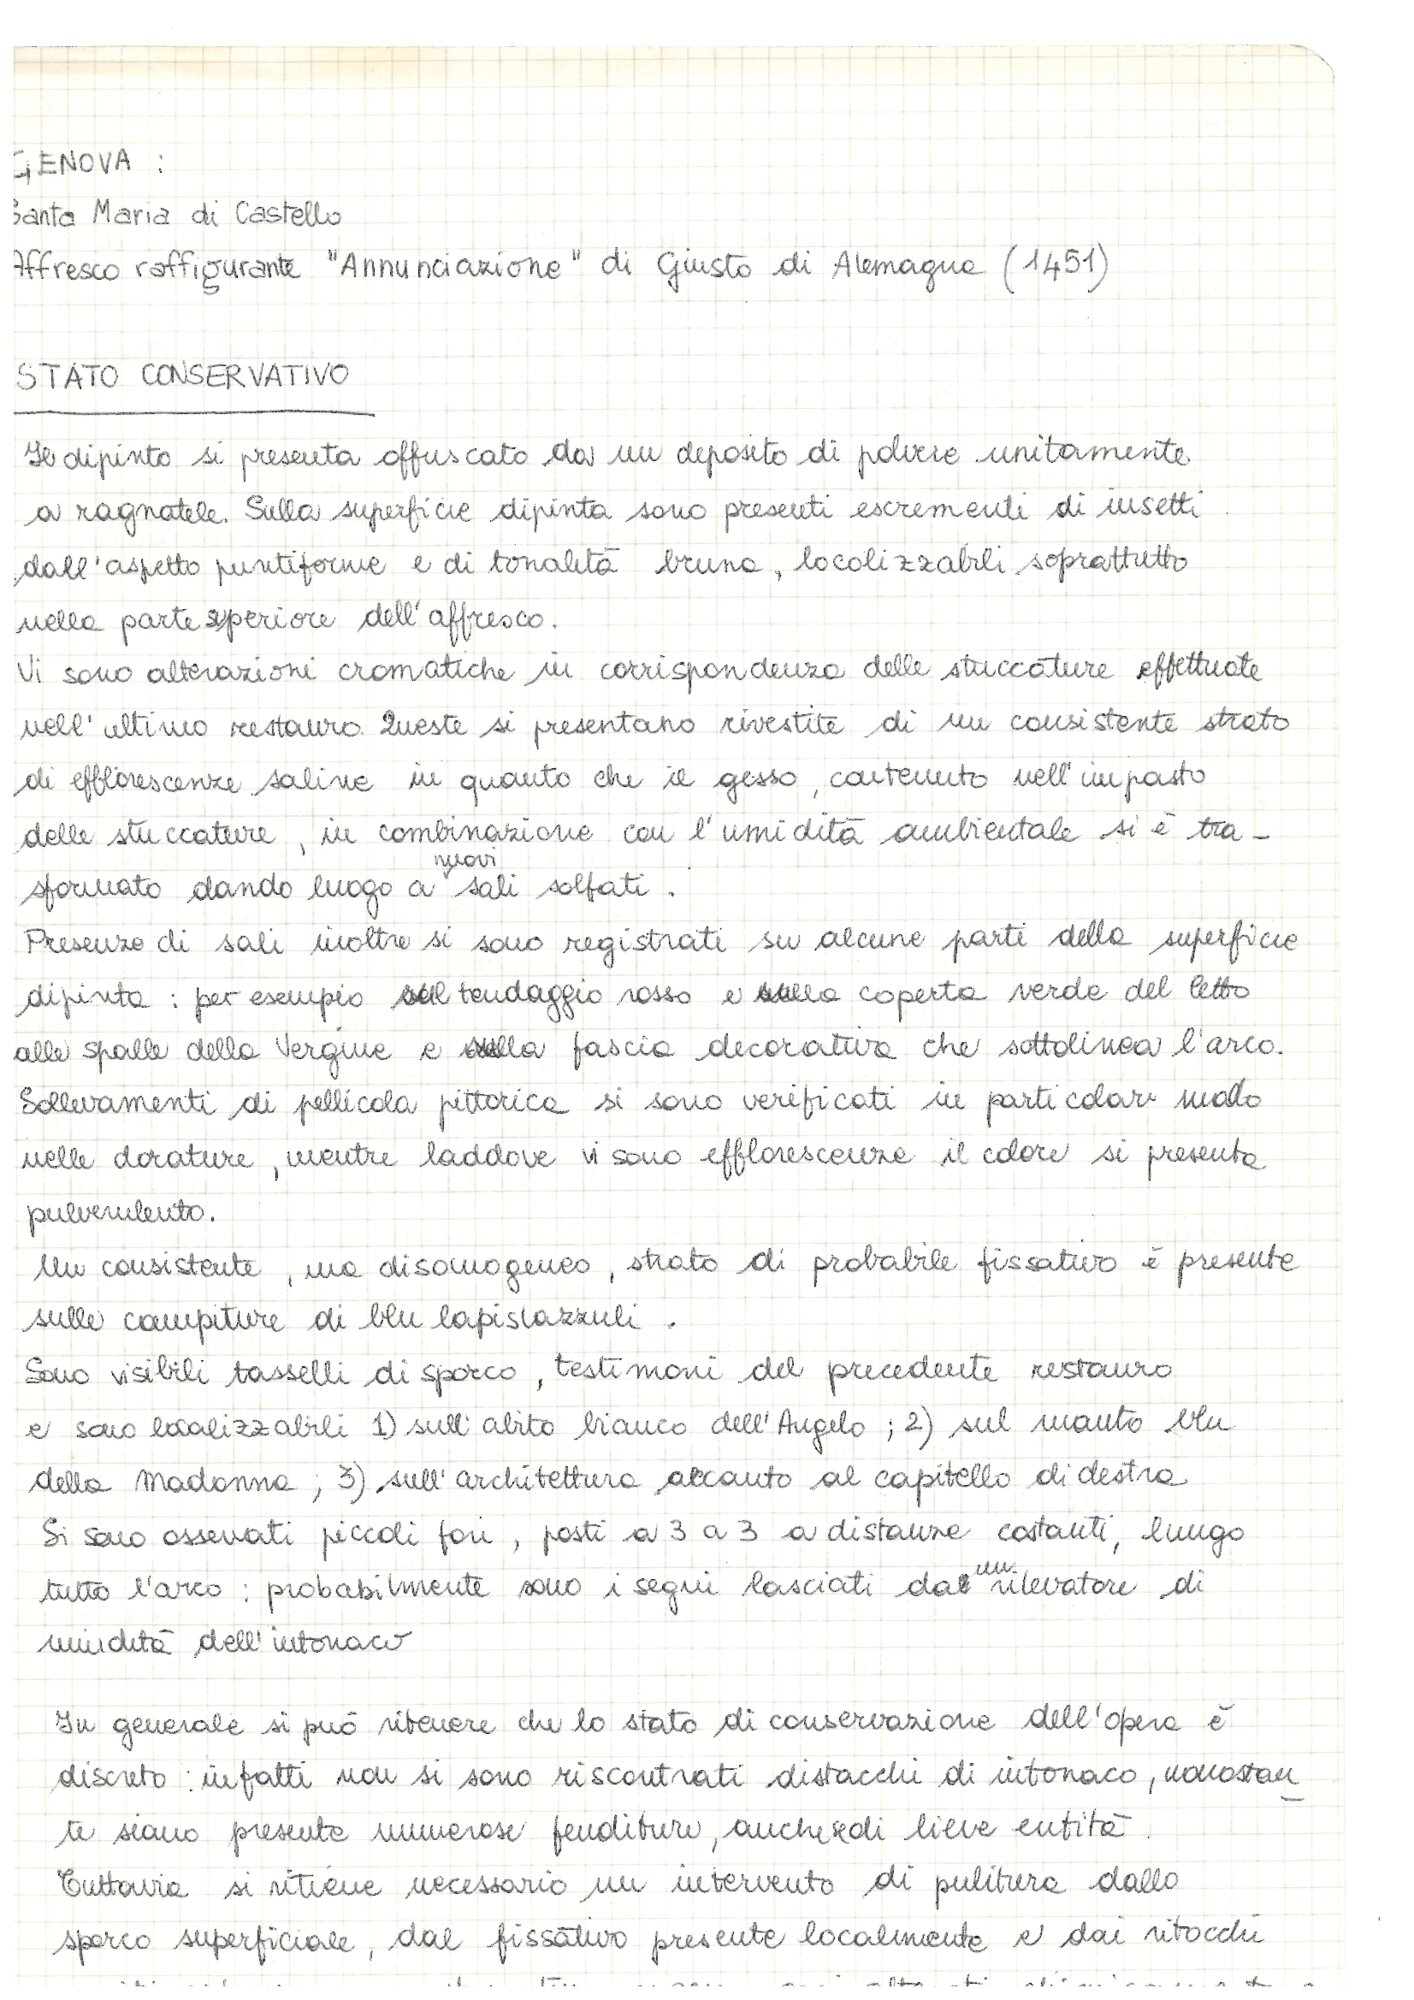 GENOVA :
Santa Maria di Castello
Affresco raffigurante "Annunciazione" di Giusto di Alemagna (1451)
STATO CONSERVATIVO
Il dipinto si presenta offuscato da un deposito di polvere unitamente
a ragnatele. Sulla superficie dipinta sono presenti escrementi di insetti
dall'aspetto puntiforme e di tonalità bruna, localizzabili soprattutto
nella parte superiore dell'affresco.
Vi sono alterazioni cromatiche in corrispondenza delle stuccature effettuate
nell'ultimo restauro. Queste si presentano rivestite di un consistente strato
di efflorescenze saline in quanto che il gesso, contenuto nell'impasto
delle stuccature, in combinazione con l'umidità ambientale si è tra-
sformato dando luogo a nuovi sali solfati.
Presenze di sali inoltre si sono registrati su alcune parti della superficie
dipinta : per esempio sul tendaggio rosso e sulla coperta verde del letto
alle spalle della Vergine e sulla fascia decorativa che sottolinea l'arco.
Sollevamenti di pellicola pittorica si sono verificati in particolar modo
nelle dorature, mentre laddove vi sono efflorescenze il colore si presenta
pulverulento.
Un consistente, ma disomogeneo, strato di probabile fissativo è presente
sulle campiture di blu lapislazzuli.
Sono visibili tasselli di sporco, testimoni del precedente restauro
e sono localizzabili 1) sull'abito bianco dell'Angelo ; 2) sul manto blu
della Madonna ; 3) sull'architettura accanto al capitello di destra
Si sono osservati piccoli fori, posti a 3 a 3 a distanze costanti, lungo
tutto l'arco : probabilmente sono i segni lasciati da un rilevatore di
umidità dell'intonaco
In generale si può ritenere che lo stato di conservazione dell'opera è
discreto : infatti non si sono riscontrati distacchi di intonaco, nonostan
te siano presente numerose fenditure, anche di lieve entità.
Tuttavia si ritiene necessario un intervento di pulitura dallo
sporco superficiale, dal fissativo presente localmente e dai ritocchi